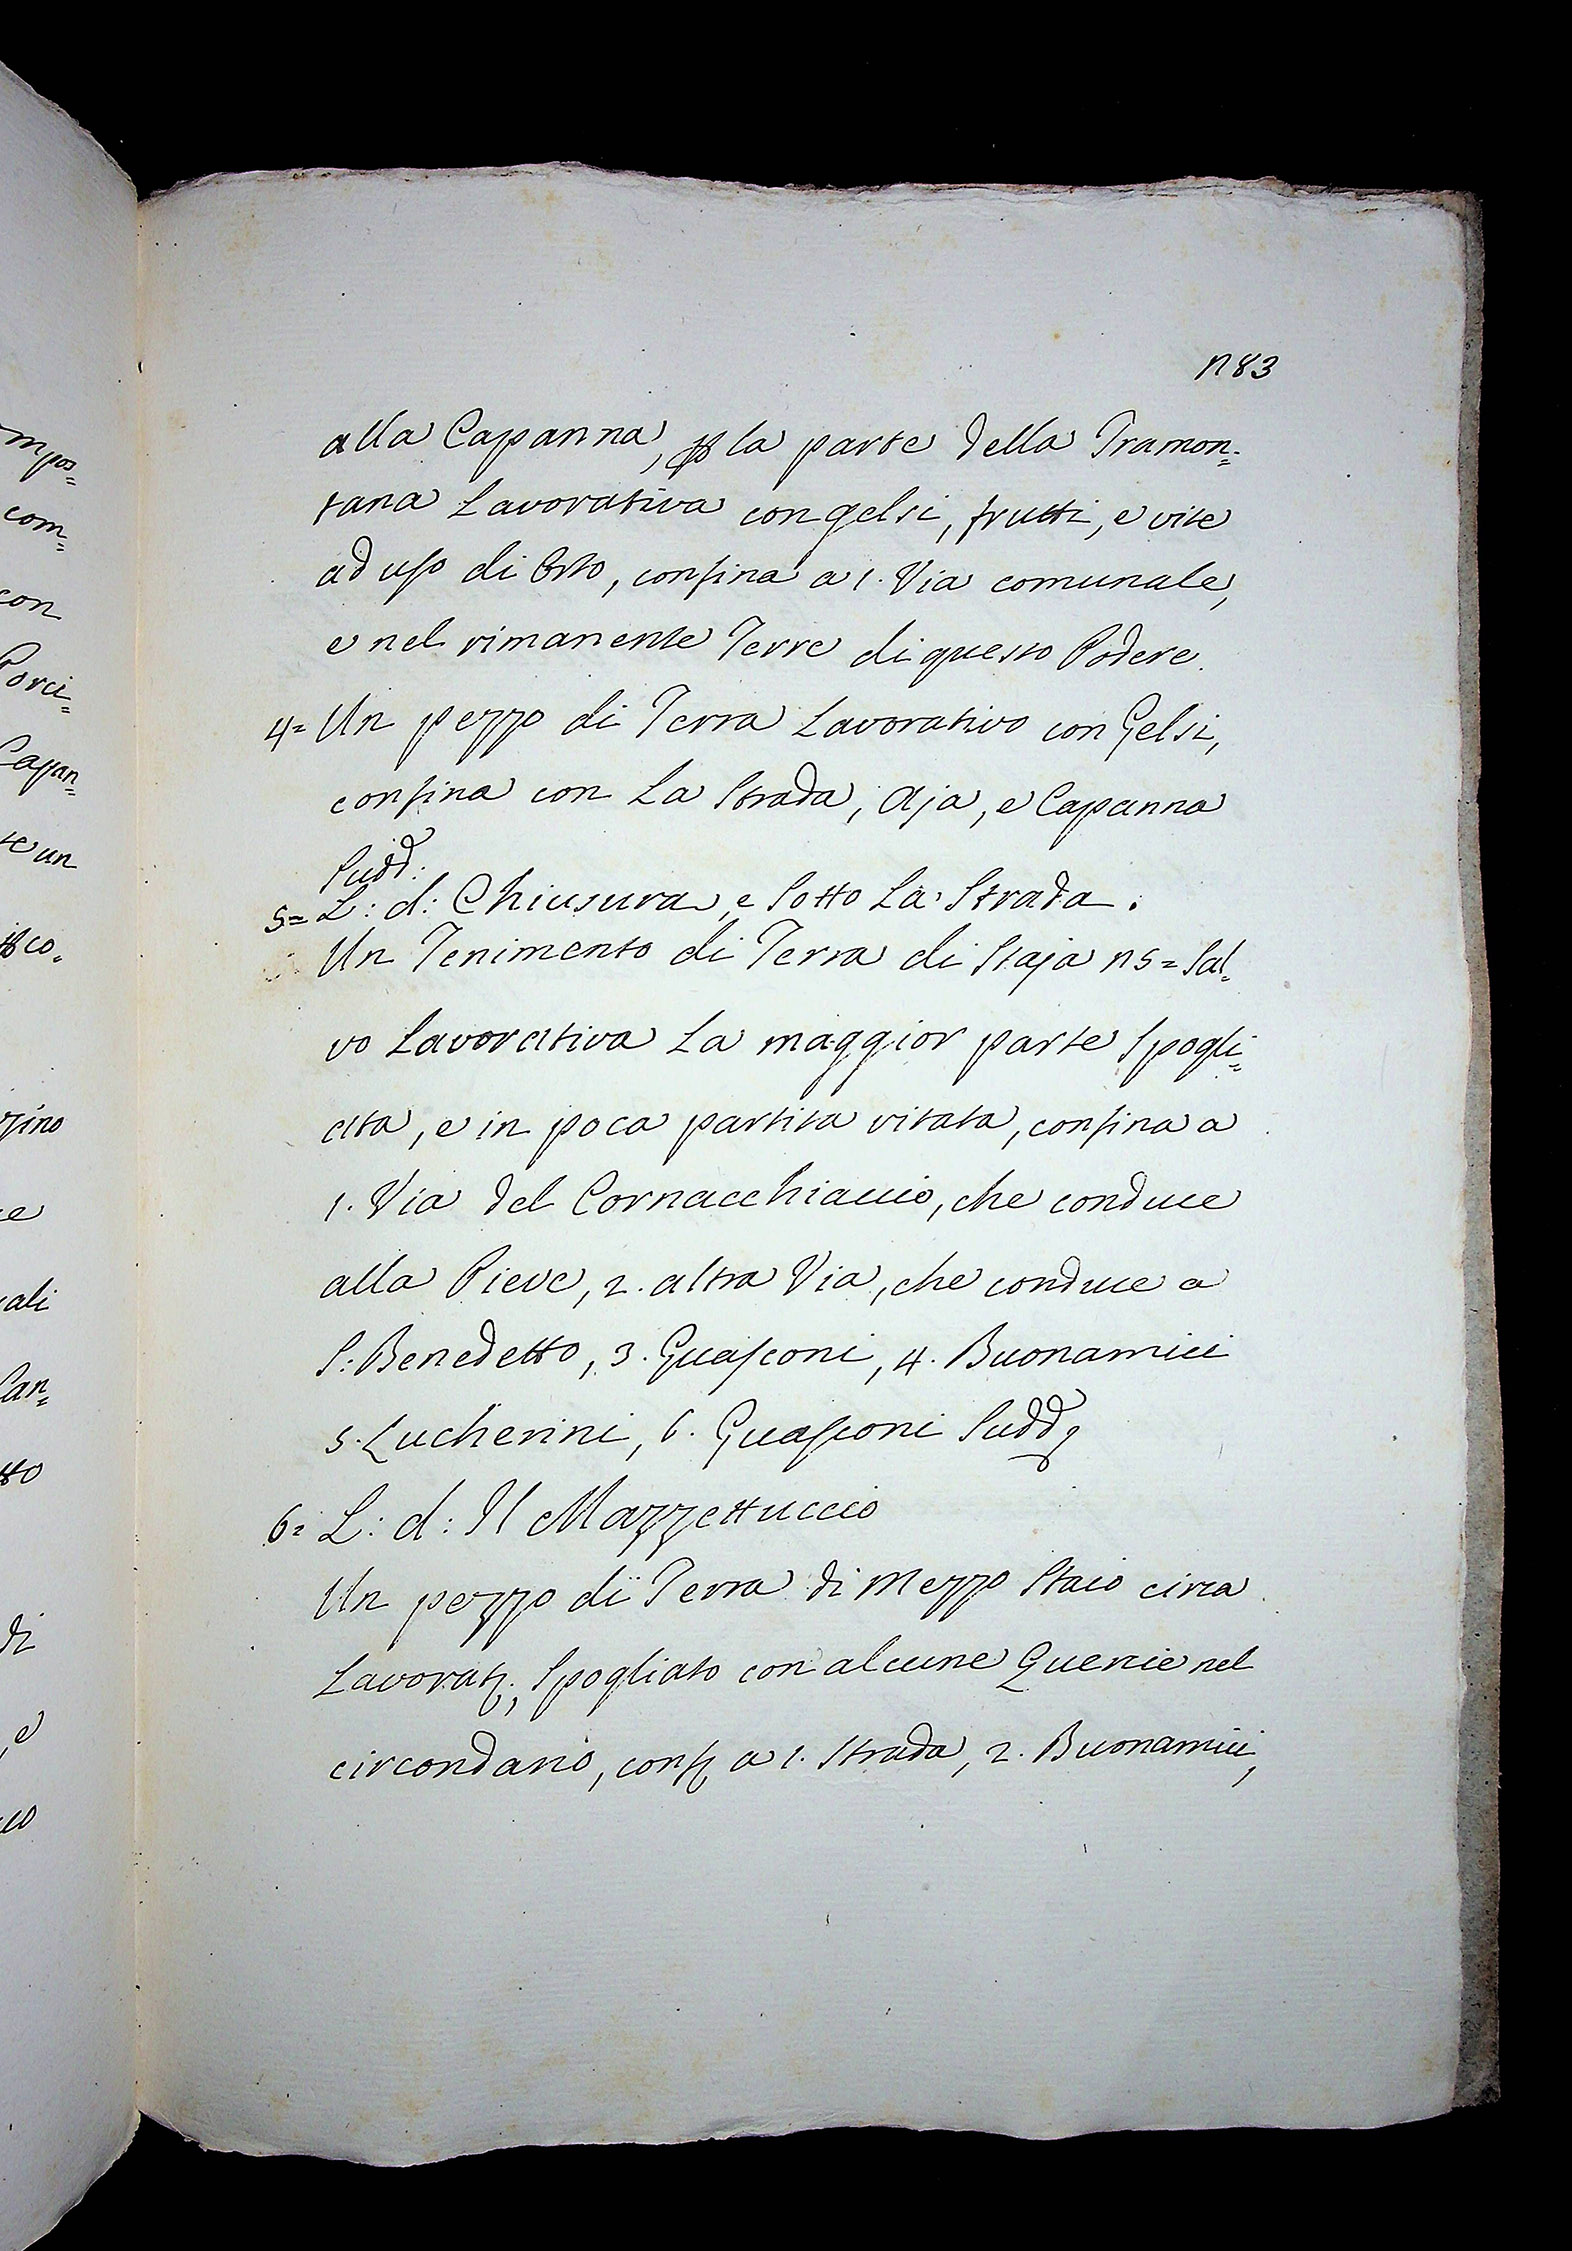 n 83
alla Capanna, p la parte della Tramon=
tana Lavorativa con gelsi, frutti, e vite
ad uso di Orto, confina a 1. Via comunale,
e nel rimanente Terre di questo Podere.
4= Un pezzo di Terra Lavorativo con Gelsi,
confina con La Strada, Aja, e Capanna
Sudd:
5= L: d: Chiusura, e Sotto La Strada.
Un Tenimento di Terra di Staja n 5= Sal=
vo Lavorativa La maggior parte Spogli=
ata, e in poca partita vitata, confina a
1. Via del Cornacchiaccio, che conduce
alla Pieve, 2. altra Via, che conduce a
S: Benedetto, 3. Guasconi, 4. Buonamici
5. Lucherini, 6. Guasconi Sudd
6= L: d: Il Mazzettuccio
Un pezzo di Terra di Mezzo Staio circa
Lavorat:, Spogliato con alcune Quercie nel
circondario, conf a 1. Strada, 2. Buonamici,
mpos=
com=
con
Porci=
Capan=
te un
co.
zzino
ce
ali
Can=
tto
di
, e